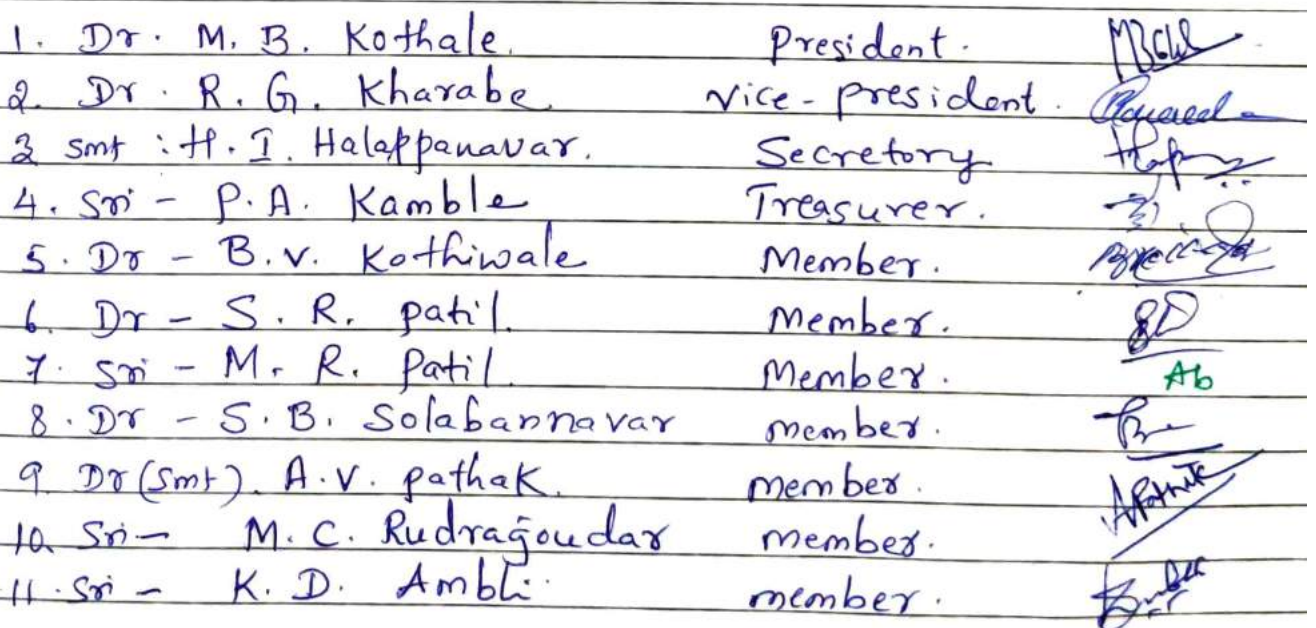 1. Dr. M. B. Kothale. President.
2. Dr. R. G. Kharabe Vice-president.
3 smt : H. I. Halappanavar. Secretory
4. Sri - P. A. Kamble Treasurer.
5. Dr - B. V. Kothiwale Member.
6. Dr - S. R. patil. Member.
7. Sri - M. R. Patil Member. Ab
8. Dr - S. B. Solabannavar member.
9. Dr (Smt). A. V. pathak. member.
10. Sri - M. C. Rudragoudar member.
11. Sri - K. D. Ambli member.